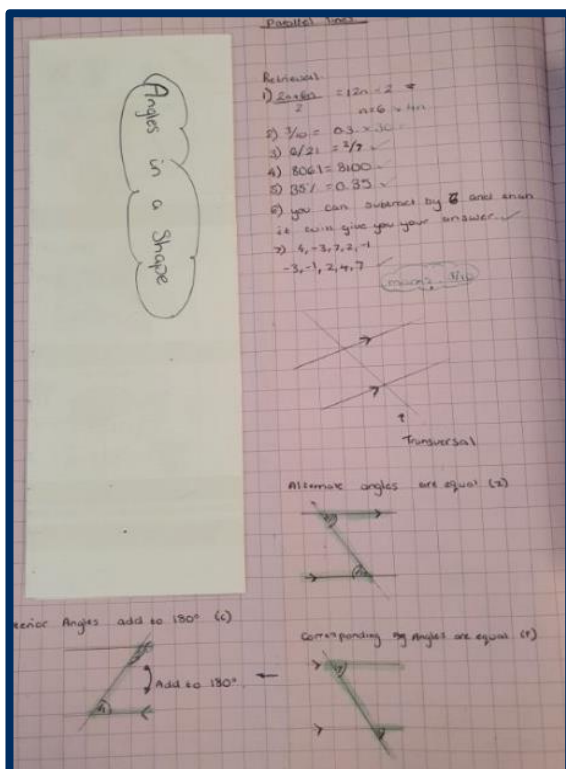 Parallel lines
Angles in a Shape
Retrieval
1) = 12n - 2
2
n=6
2) 3/10 = 0.3
3) 6/21 = 2/7 ✓
4) 8061 = 8100
5) 35% = 0.35 ✓
6) you can subtract by 6 and
it will give you your answer ✓
7) 4, -3, 7, 2, -1
-3, -1, 2, 4, 7 ✓
Transversal
Alternate angles are equal (z)
Angles add to 180° (c)
Add to 180°
Corresponding Angles are equal (F)